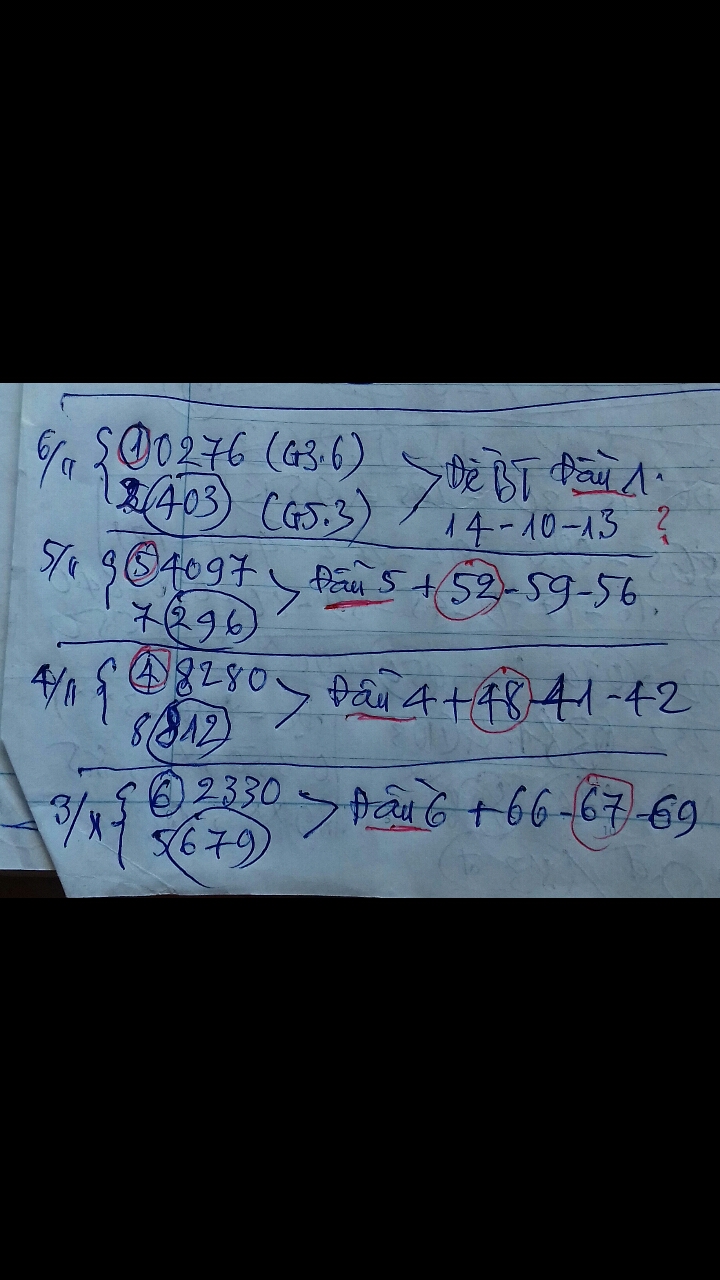 6/11 { 10276 (G3.6) > Đề BT Đầu 1.
2403 (G5.3) 14-10-13 ?
5/11 { 54097 > Đầu 5 + 52-59-56
7296
4/11 { 48280 > Đầu 4 + 48-41-42
8812
3/x { 62330 > Đầu 6 + 66-67-69
5679